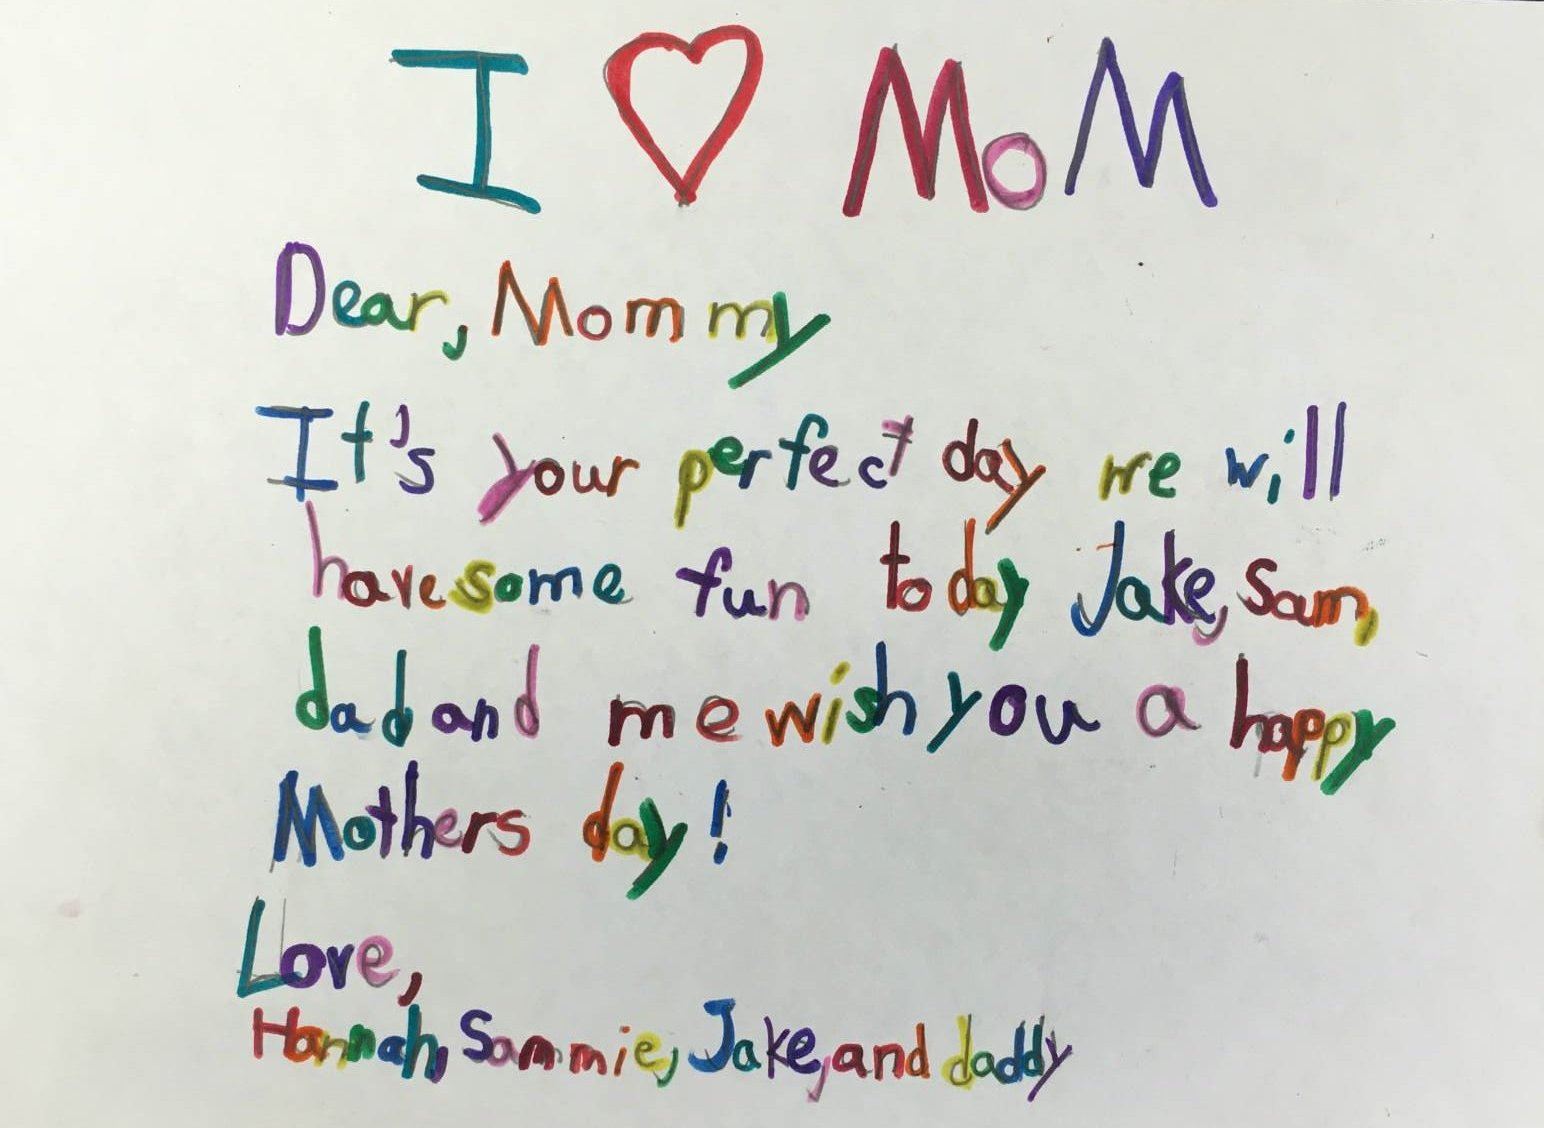 I ♡ MoM
Dear, Mommy
It's your perfect day we will
have some fun today Jake, Sam,
dad and me wish you a happy
Mothers day!
Love,
Hannah, Sammie, Jake, and daddy